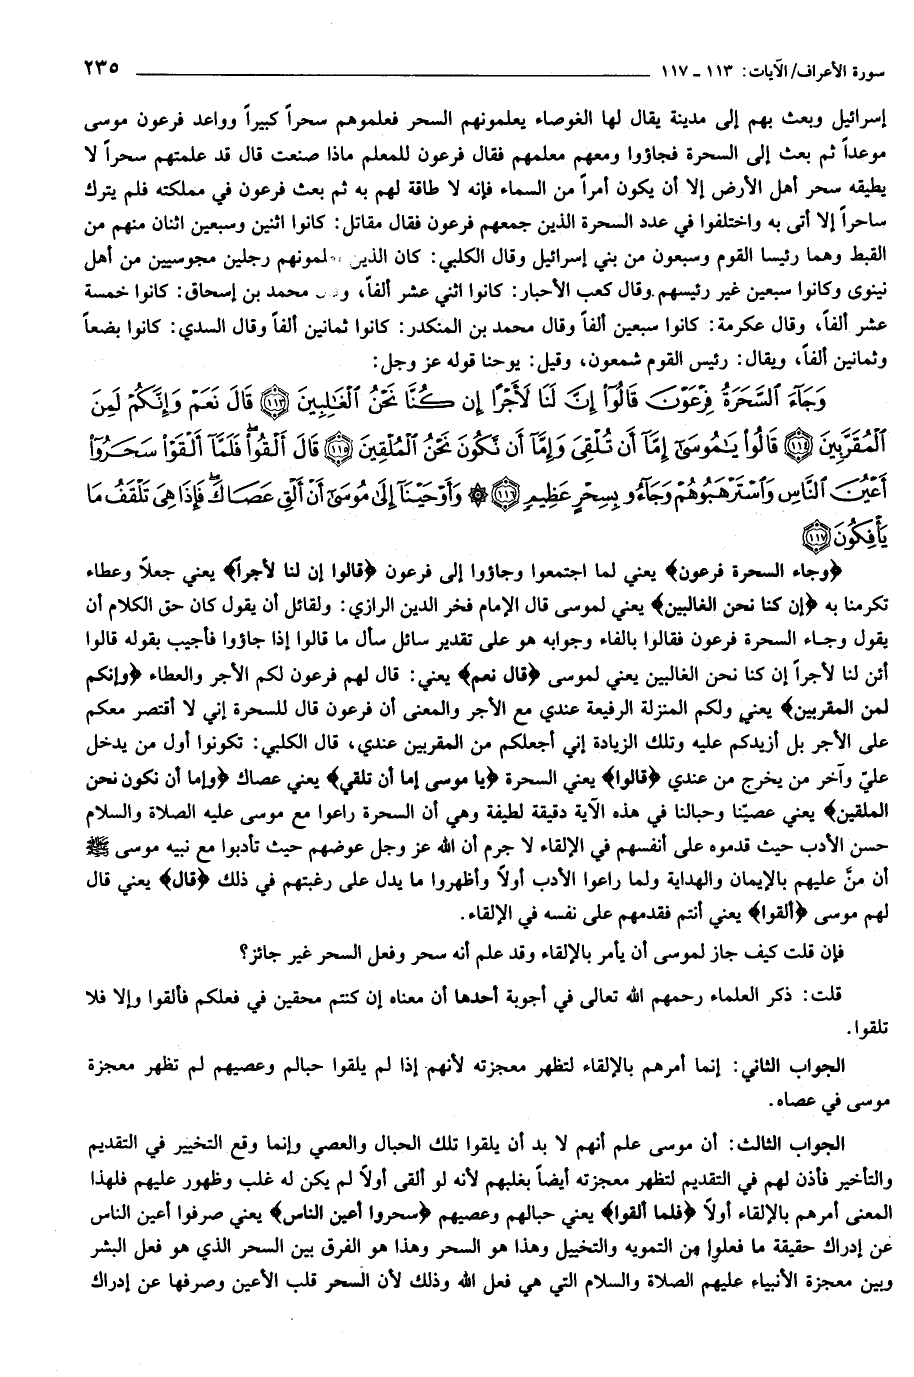 سورة الأعراف/ الآيات: ١١٣ ـ ١١٧ ٢٣٥
إسرائيل وبعث بهم إلى مدينة يقال لها الغوصاء يعلمونهم السحر فعلموهم سحراً كبيراً وواعد فرعون موسى
موعداً ثم بعث إلى السحرة فجاؤوا ومعهم معلمهم فقال فرعون للمعلم ماذا صنعت قال قد علمتهم سحراً لا
يطيقه سحر أهل الأرض إلا أن يكون أمراً من السماء فإنه لا طاقة لهم به ثم بعث فرعون في مملكته فلم يترك
ساحراً إلا أتى به واختلفوا في عدد السحرة الذين جمعهم فرعون فقال مقاتل: كانوا اثنين وسبعين اثنان منهم من
القبط وهما رئيسا القوم وسبعون من بني إسرائيل وقال الكلبي: كان الذين رجلين مجوسيين من أهل
نينوى وكانوا سبعين غير رئيسهم وقال كعب الأحبار: كانوا اثني عشر ألفاً، محمد بن إسحاق: كانوا خمسة
عشر ألفاً، وقال عكرمة: كانوا سبعين ألفاً وقال محمد بن المنكدر: كانوا ثمانين ألفاً وقال السدي: كانوا بضعاً
وثمانين ألفاً، ويقال: رئيس القوم شمعون، وقيل: يوحنا قوله عز وجل:
وَجَآءَ ٱلسَّحَرَةُ فِرْعَوْنَ قَالُوٓا۟ إِنَّ لَنَا لَأَجْرًا إِن كُنَّا نَحْنُ ٱلْغَٰلِبِينَ ۝١١٣ قَالَ نَعَمْ وَإِنَّكُمْ لَمِنَ
ٱلْمُقَرَّبِينَ ۝١١٤ قَالُوا۟ يَٰمُوسَىٰٓ إِمَّآ أَن تُلْقِىَ وَإِمَّآ أَن نَّكُونَ نَحْنُ ٱلْمُلْقِينَ ۝١١٥ قَالَ أَلْقُوا۟ۖ فَلَمَّآ أَلْقَوْا۟ سَحَرُوٓا۟
أَعْيُنَ ٱلنَّاسِ وَٱسْتَرْهَبُوهُمْ وَجَآءُو بِسِحْرٍ عَظِيمٍ ۝١١٦ ۞ وَأَوْحَيْنَآ إِلَىٰ مُوسَىٰٓ أَنْ أَلْقِ عَصَاكَۖ فَإِذَا هِىَ تَلْقَفُ مَا
يَأْفِكُونَ ۝١١٧
﴿وجاء السحرة فرعون﴾ يعني لما اجتمعوا وجاؤوا إلى فرعون ﴿قالوا إن لنا لأجراً﴾ يعني جعلاً وعطاء
تكرمنا به ﴿إن كنا نحن الغالبين﴾ يعني لموسى قال الإمام فخر الدين الرازي: ولقائل أن يقول كان حق الكلام أن
يقول وجاء السحرة فرعون فقالوا بالفاء وجوابه هو على تقدير سائل سأل ما قالوا إذا جاؤوا فأجيب بقوله قالوا
أئن لنا لأجراً إن كنا نحن الغالبين يعني لموسى ﴿قال نعم﴾ يعني: قال لهم فرعون لكم الأجر والعطاء ﴿وإنكم
لمن المقربين﴾ يعني ولكم المنزلة الرفيعة عندي مع الأجر والمعنى أن فرعون قال للسحرة إني لا أقتصر معكم
على الأجر بل أزيدكم عليه وتلك الزيادة إني أجعلكم من المقربين عندي، قال الكلبي: تكونوا أول من يدخل
عليّ وآخر من يخرج من عندي ﴿قالوا﴾ يعني السحرة ﴿يا موسى إما أن تلقي﴾ يعني عصاك ﴿وإما أن نكون نحن
الملقين﴾ يعني عصيّنا وحبالنا في هذه الآية دقيقة لطيفة وهي أن السحرة راعوا مع موسى عليه الصلاة والسلام
حسن الأدب حيث قدموه على أنفسهم في الإلقاء لا جرم أن الله عز وجل عوضهم حيث تأدبوا مع نبيه موسى ﷺ
أن منَّ عليهم بالإيمان والهداية ولما راعوا الأدب أولاً وأظهروا ما يدل على رغبتهم في ذلك ﴿قال﴾ يعني قال
لهم موسى ﴿ألقوا﴾ يعني أنتم فقدمهم على نفسه في الإلقاء.
فإن قلت كيف جاز لموسى أن يأمر بالإلقاء وقد علم أنه سحر وفعل السحر غير جائز؟
قلت: ذكر العلماء رحمهم الله تعالى في أجوبة أحدها أن معناه إن كنتم محقين في فعلكم فألقوا وإلا فلا
تلقوا.
الجواب الثاني: إنما أمرهم بالإلقاء لتظهر معجزته لأنهم إذا لم يلقوا حبالم وعصيهم لم تظهر معجزة
موسى في عصاه.
الجواب الثالث: أن موسى علم أنهم لا بد أن يلقوا تلك الحبال والعصي وإنما وقع التخيير في التقديم
والتأخير فأذن لهم في التقديم لتظهر معجزته أيضاً بغلبهم لأنه لو ألقى أولاً لم يكن له غلب وظهور عليهم فلهذا
المعنى أمرهم بالإلقاء أولاً ﴿فلما ألقوا﴾ يعني حبالهم وعصيهم ﴿سحروا أعين الناس﴾ يعني صرفوا أعين الناس
عن إدراك حقيقة ما فعلوا من التمويه والتخييل وهذا هو السحر وهذا هو الفرق بين السحر الذي هو فعل البشر
وبين معجزة الأنبياء عليهم الصلاة والسلام التي هي فعل الله وذلك لأن السحر قلب الأعين وصرفها عن إدراك